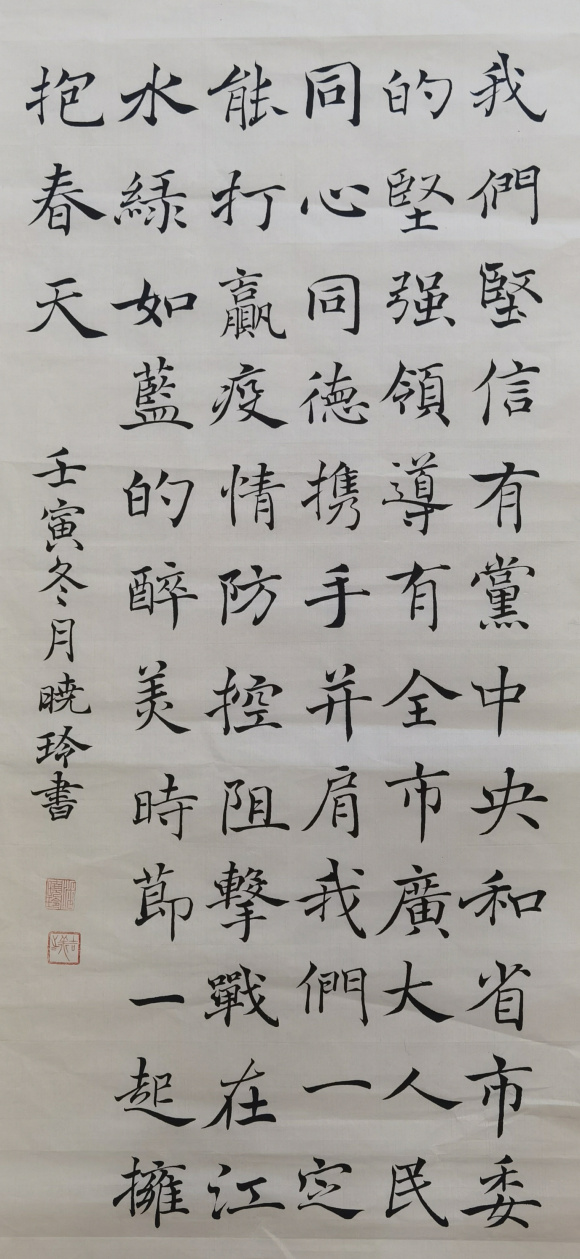 我們堅信有黨中央和省市委
的堅强領導有全市廣大人民
同心同德携手并肩我們一定
能打贏疫情防控阻擊戰在江
水緑如藍的醉美時莭一起擁
抱春天
壬寅冬月曉玲書